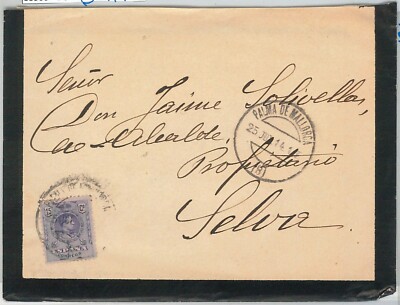 Señor
Don Jaime Solivellas,
ex-Alcalde,
Propietario
Selva.
PALMA DE MALLORCA
25 JUN 14
ESPAÑA